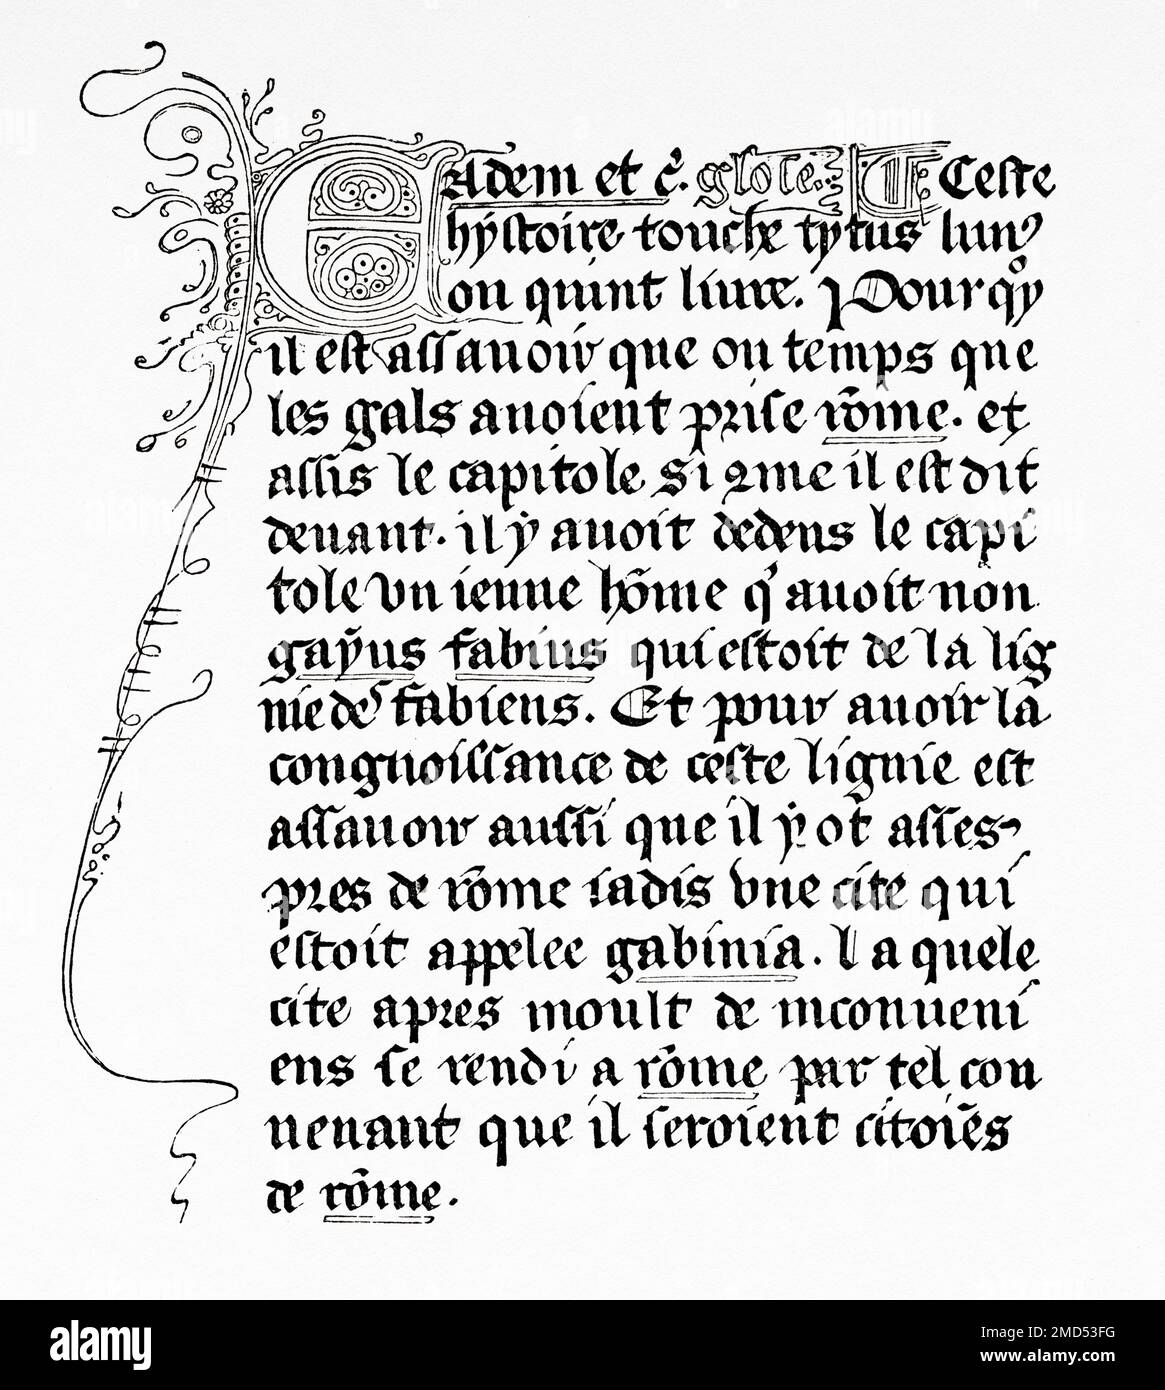 EAdem et c̃. glose. ¶ Ceste
hystoire touche tytus liuiꝰ
ou quint liure. Pour qͦy
il est assauoir que ou temps que
les gals auoient prise rõme. et
assis le capitole si 2me il est dit
deuant. il ẏ auoit dedens le capi
tole vn ieune hõme q̓ auoit non
gaẏus fabius qui estoit de la lig
nie des fabiens. Et pour auoir la
congnoissance de ceste lignie est
assauoir aussi que il ẏ ot̃ asses
pres de rõme iadis vne cite qui
estoit appelee gabinia. la quele
cite apres moult de inconueni
ens se rendi a rõme par tel con
uenant que il seroient citoiẽs
de rõme.
alamy
Image ID: 2MD53FG
www.alamy.com